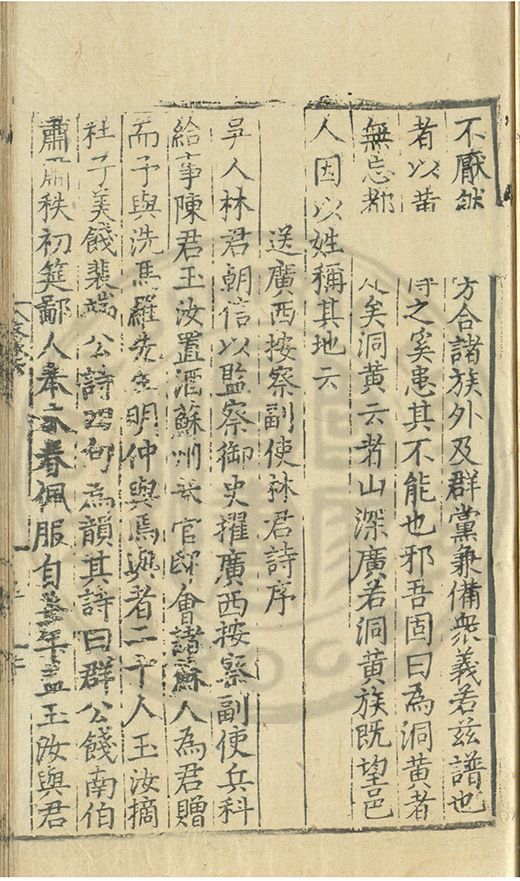 不厭然 方合諸族外及群黨兼備衆義若兹譜也
者以黃 之奚患其不能也邪吾固曰為洞黃者
無忘 矣洞黃云者山深廣若洞黃族既望邑
人因以姓稱其地云
送廣西按察副使林君詩序
吳人林君朝信以監察御史擢廣西按察副使兵科
給事陳君玉汝置酒蘇州 官邸會諸蘇人為君贈
而予與洗馬羅先生明仲與焉與者二十人玉汝摘
杜子美餞裴端公詩四句為韻其詩曰群公餞南伯
肅肅秩初筵鄙人奉末眷佩服自 年蓋玉汝與君